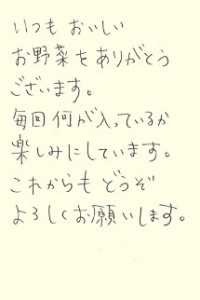 いつも おいしい
お野菜をありがとう
ございます。
毎回何が入っているか
楽しみにしています。
これからも どうぞ
よろしくお願いします。